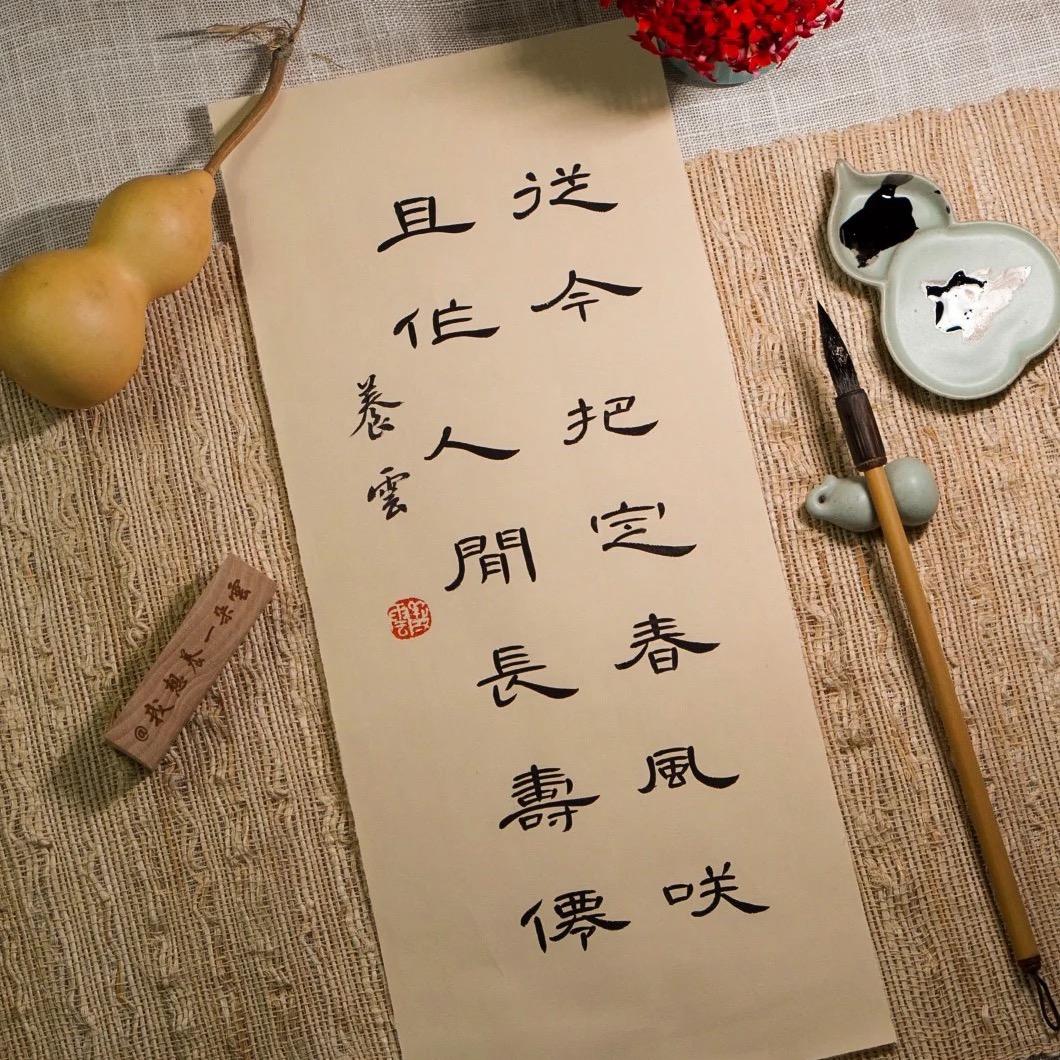 从今把定春風咲
且作人間長壽僊
養雲
@我想养一朵雲